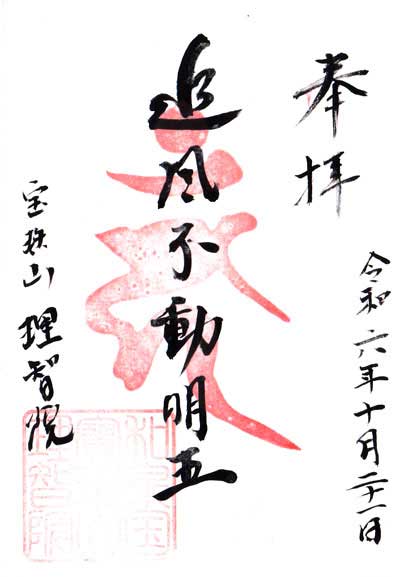 奉拝
令和六年十月二十一日
追風不動明王
宝珠山 理智院